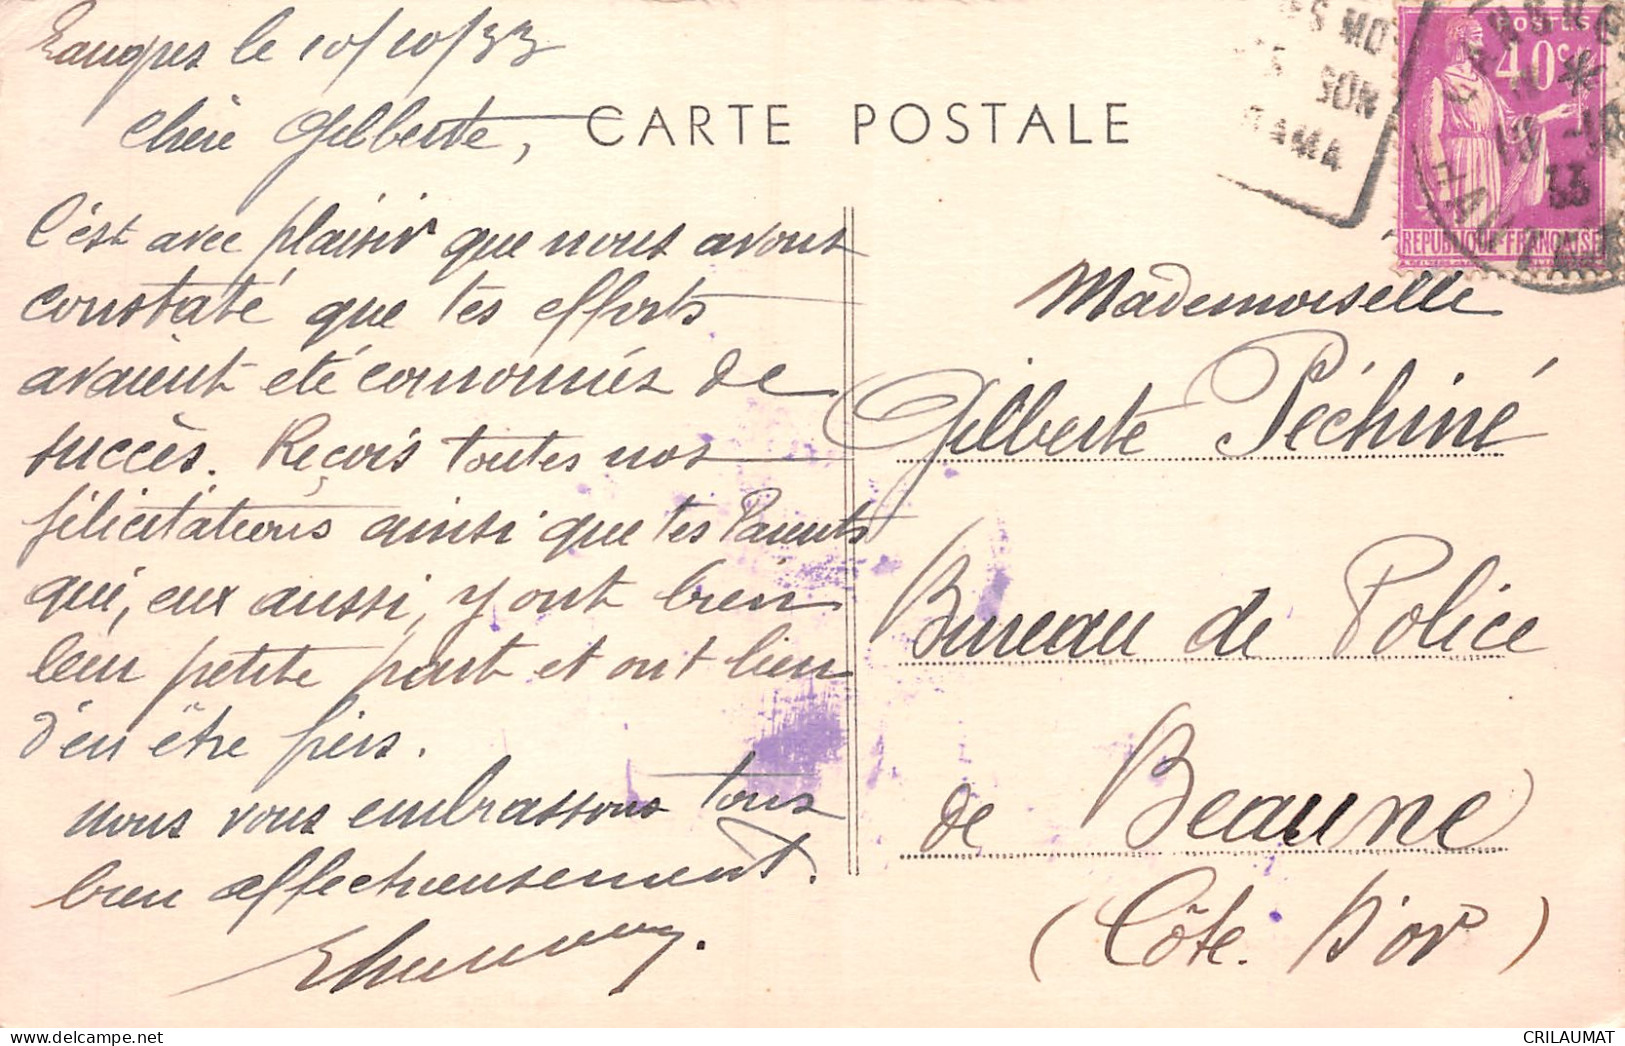 Langres le 10/10/33
Chère Gilberte,
C'est avec plaisir que nous avons
constaté que tes efforts
avaient été couronnés de
succès. Reçois toutes nos
félicitations ainsi que tes Parents
qui, eux aussi, y ont bien
leur petite part et ont lieu
d'en être fiers.
Nous vous embrassons tous
bien affectueusement.
CARTE POSTALE
SON
RAMA
POSTES
40c
RÉPUBLIQUE-FRANÇAISE
Mademoiselle
Gilberte Péchiné
Bureau de Police
de Beaune
(Côte. D'or)
CRILAUMAT